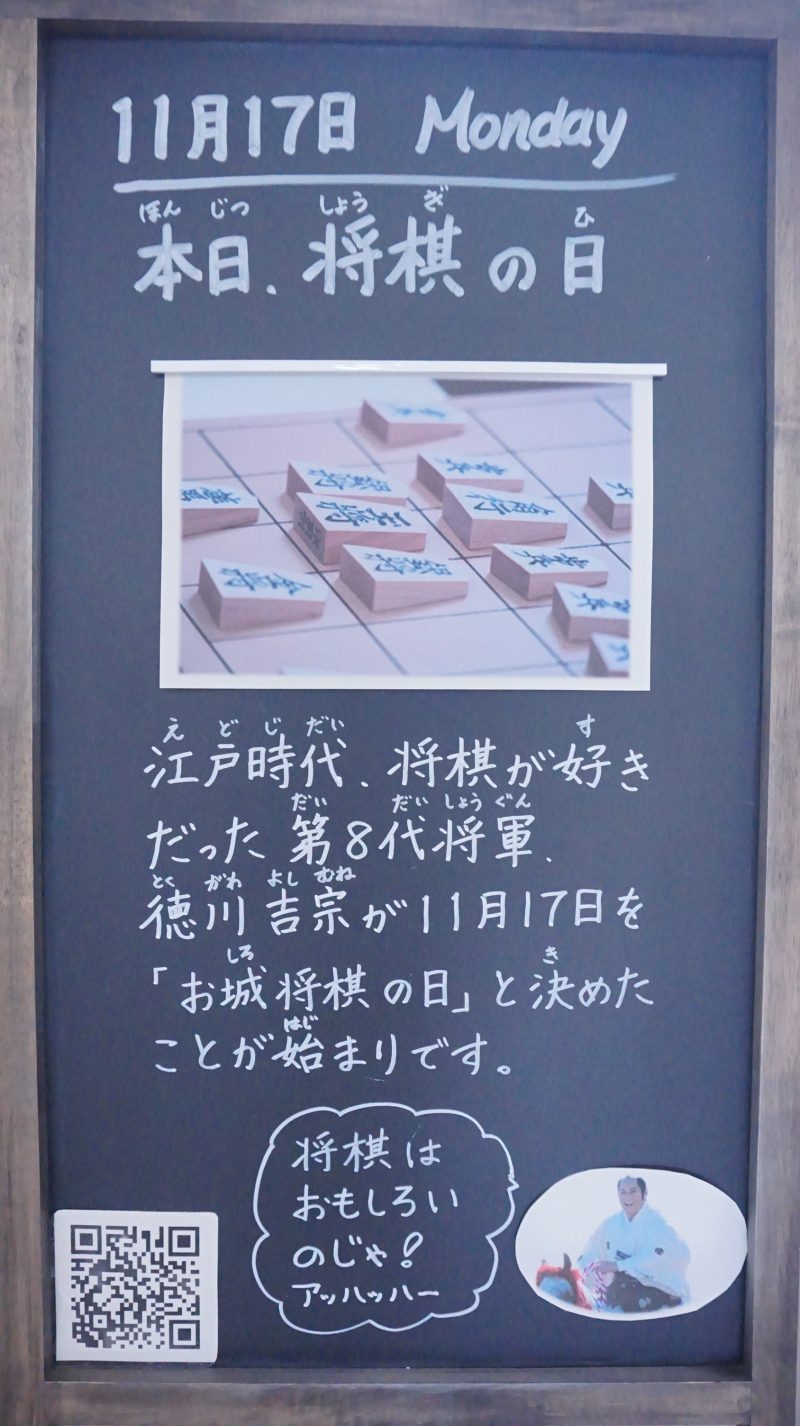 11月17日 Monday
ほんじつ しょうぎ ひ
本日、将棋の日
えどじだい す
江戸時代、将棋が好き
だい だいしょうぐん
だった第8代将軍、
とくがわよしむね
徳川吉宗が11月17日を
しろ き
「お城将棋の日」と決めた
はじ
ことが始まりです。
将棋は
おもしろい
のじゃ!
アッハッハー